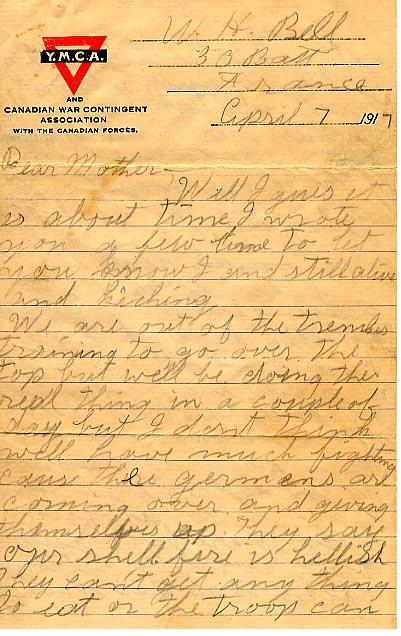 Y.M.C.A.
AND
CANADIAN WAR CONTINGENT
ASSOCIATION
WITH THE CANADIAN FORCES.
W. H. Bell
38 Batt
France
April 7 1917
Dear Mother—
Well I guess it
is about time I wrote
you a few time to let
you know I and still alive
and kiching
We are out of the trenches
training to go over the
top but well be doing the
real thing in a couple of
day but I dont think
well have much fighting
cause these germans are
coming over and giving
themselfes up They say
our shell fire is hellish
they cant get any thing
to eat or the troop can